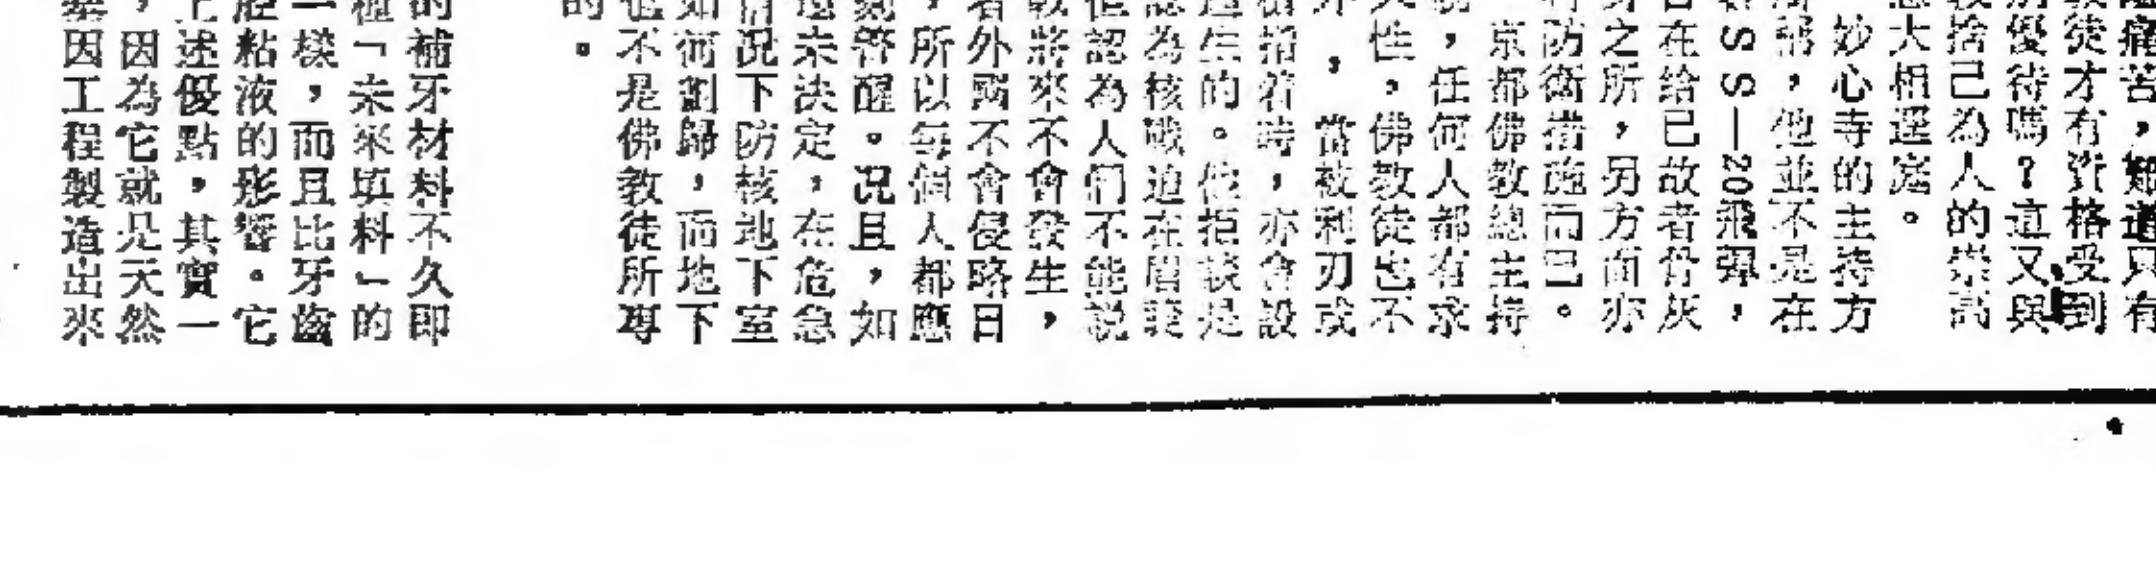 痛苦，難道只有
教徒才有資格受到
別優待嗎？這又與
教捨己為人的崇高
大相逕庭。
妙心寺的主持方
稱，他並不是在
SS—20飛彈，
在給已故者骨灰
身之所，另方面亦
防衛措施而已。
京都佛教總主持
，任何人都有求
性，佛教徒也不
外，當被利刃或
槍指着時，亦會設
逃生的。他拒談是
認為核戰迫在眉睫
但認為人們不能說
戰將來不會發生，
者外國不會侵略日
，所以每個人都應
刻警醒。况且，如
還未決定，在危急
情况下防核地下室
如何劃歸，而地下
也不是佛教徒所專
的。
的補牙材料不久即
種「未來填料」的
一樣，而且比牙齒
腔粘液的影響。它
上述優點，其實一
，因為它就是天然
因工程製造出來